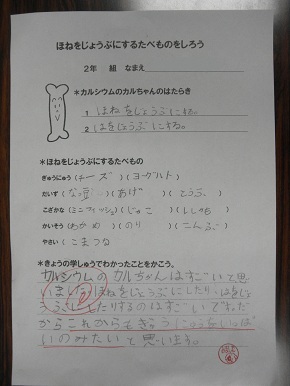 ほねをじょうぶにするたべものをしろう
2年　組　なまえ
＊カルシウムのカルちゃんのはたらき
1 ほねをじょうぶにする。
2 はをじょうぶにする。
＊ほねをじょうぶにするたべもの
ぎゅうにゅう(チーズ)(ヨーグルト)
だいず(なっ豆)(あげ)(とうふ)
こざかな(ミニフィッシュ)(じゃこ)(ししゃも)
かいそう(わかめ)(のり)(こんぶ)
やさい(こまつな)
＊きょうの学しゅうでわかったことをかこう。
カルシウムのカルちゃんはすごいと思
いました。ほねをじょうぶにしたり、はをじょ
うぶにしたりするのはすごいです。だ
からこれからもぎゅうにゅうをいっぱ
いのみたいと思います。